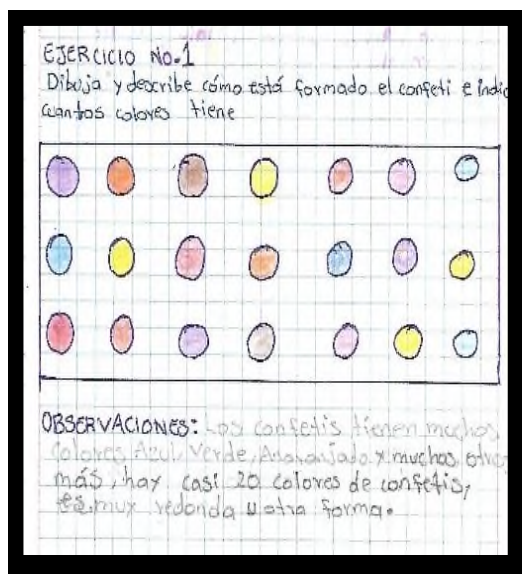 EJERCICIO No.1
Dibuja y describe cómo está formado el confeti e indic
cuantos colores tiene
OBSERVACIONES: Los confetis tienen muchos
colores Azul, Verde, Anaranjado y muchos otro
más, hay casi 20 colores de confetis,
es muy redonda u otra forma.